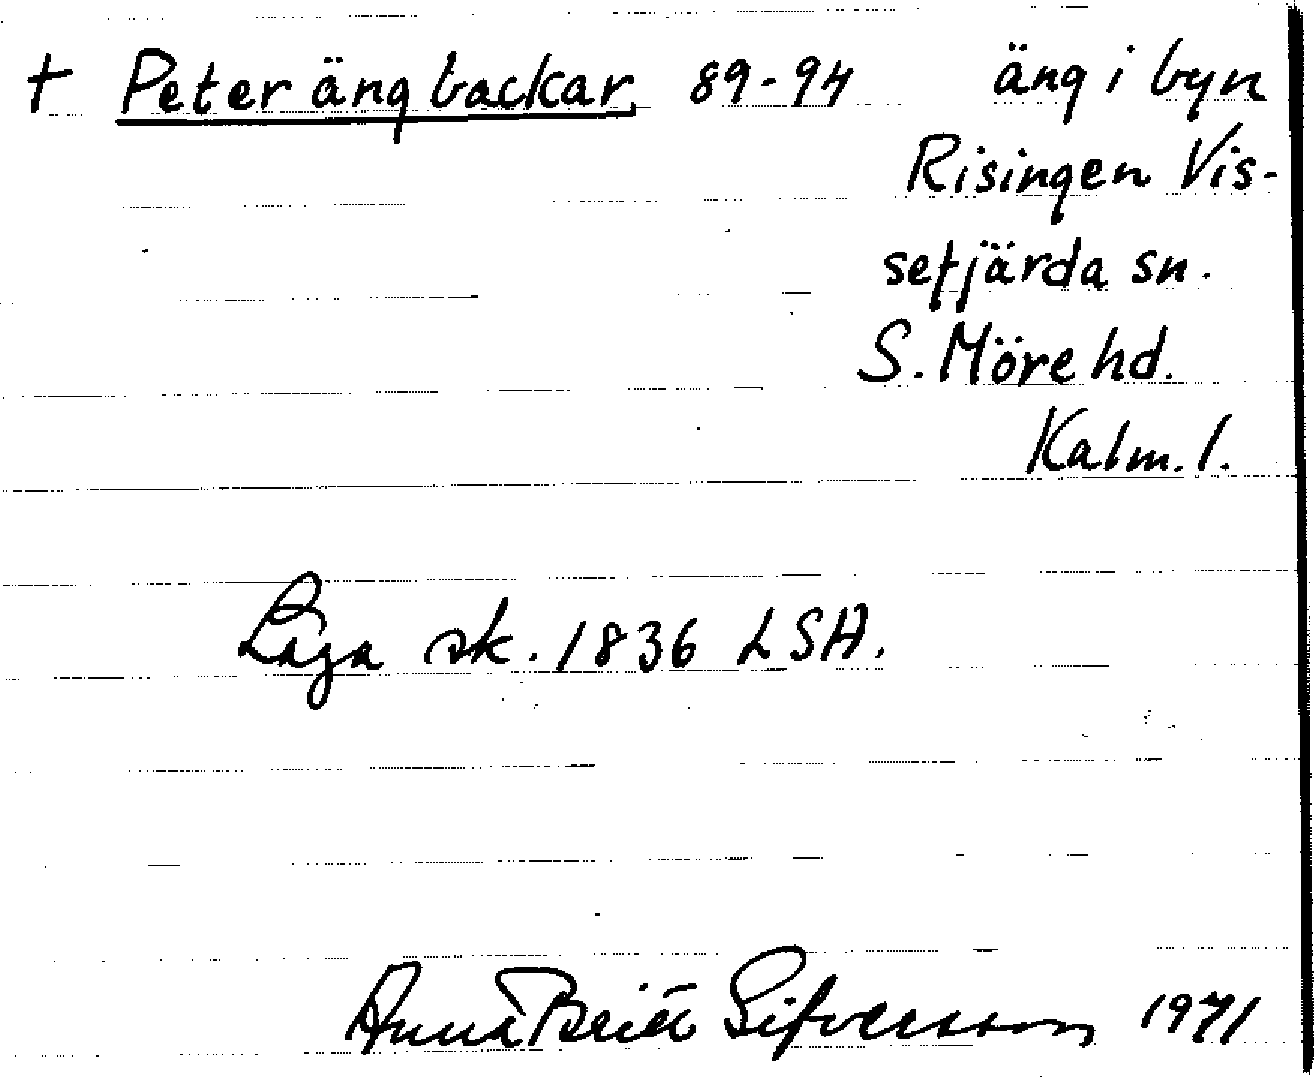 † Peter äng backar 89-94 äng i byn
Risingen Vis-
sefjärda sn.
S. Möre hd.
Kalm. l.
Laga sk. 1836 LSA.
Anna Britt Sifversson 1971